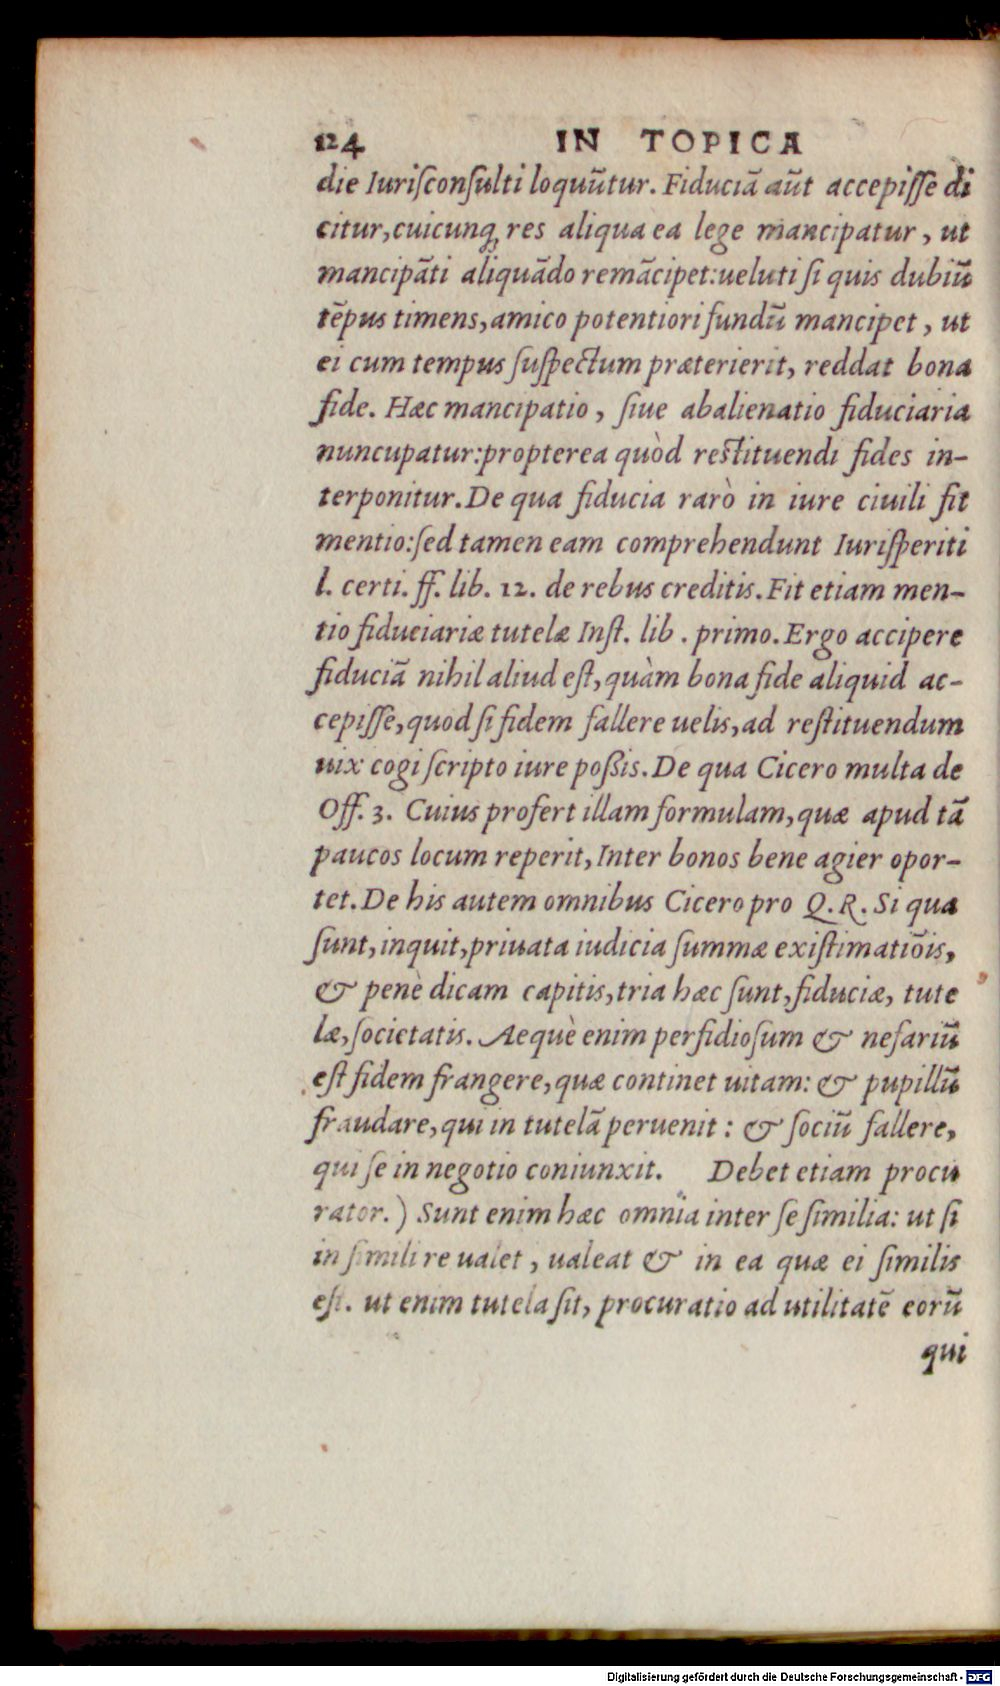 124 IN TOPICA
die Iuriſconſulti loquūtur. Fiduciā aūt accepiſſe di
citur, cuicunq; res aliqua ea lege mancipatur, ut
mancipāti aliquādo remācipet: ueluti ſi quis dubiū
tēpus timens, amico potentiori fundū mancipet, ut
ei cum tempus ſuſpectum præterierit, reddat bona
fide. Hæc mancipatio, ſiue abalienatio fiduciaria
nuncupatur: propterea quòd reſtituendi fides in-
terponitur. De qua fiducia rarò in iure ciuili fit
mentio: ſed tamen eam comprehendunt Iuriſperiti
l. certi. ff. lib. 12. de rebus creditis. Fit etiam men-
tio fiduciariæ tutelæ Inſt. lib. primo. Ergo accipere
fiduciā nihil aliud eſt, quàm bona fide aliquid ac-
cepiſſe, quod ſi fidem fallere uelis, ad reſtituendum
uix cogi ſcripto iure poßis. De qua Cicero multa de
Off. 3. Cuius profert illam formulam, quæ apud tā
paucos locum reperit, Inter bonos bene agier opor-
tet. De his autem omnibus Cicero pro Q. R. Si qua
ſunt, inquit, priuata iudicia ſummæ exiſtimatiōis,
& penè dicam capitis, tria hæc ſunt, fiduciæ, tute
læ, ſocietatis. Aequè enim perfidioſum & nefariū
eſt fidem frangere, quæ continet uitam: & pupillū
fraudare, qui in tutelā peruenit: & ſociū fallere,
qui ſe in negotio coniunxit. Debet etiam procu
rator.) Sunt enim hæc omnia inter ſe ſimilia: ut ſi
in ſimili re ualet, ualeat & in ea quæ ei ſimilis
eſt. ut enim tutela ſit, procuratio ad utilitatē eorū
qui
Digitalisierung gefördert durch die Deutsche Forschungsgemeinschaft - DFG